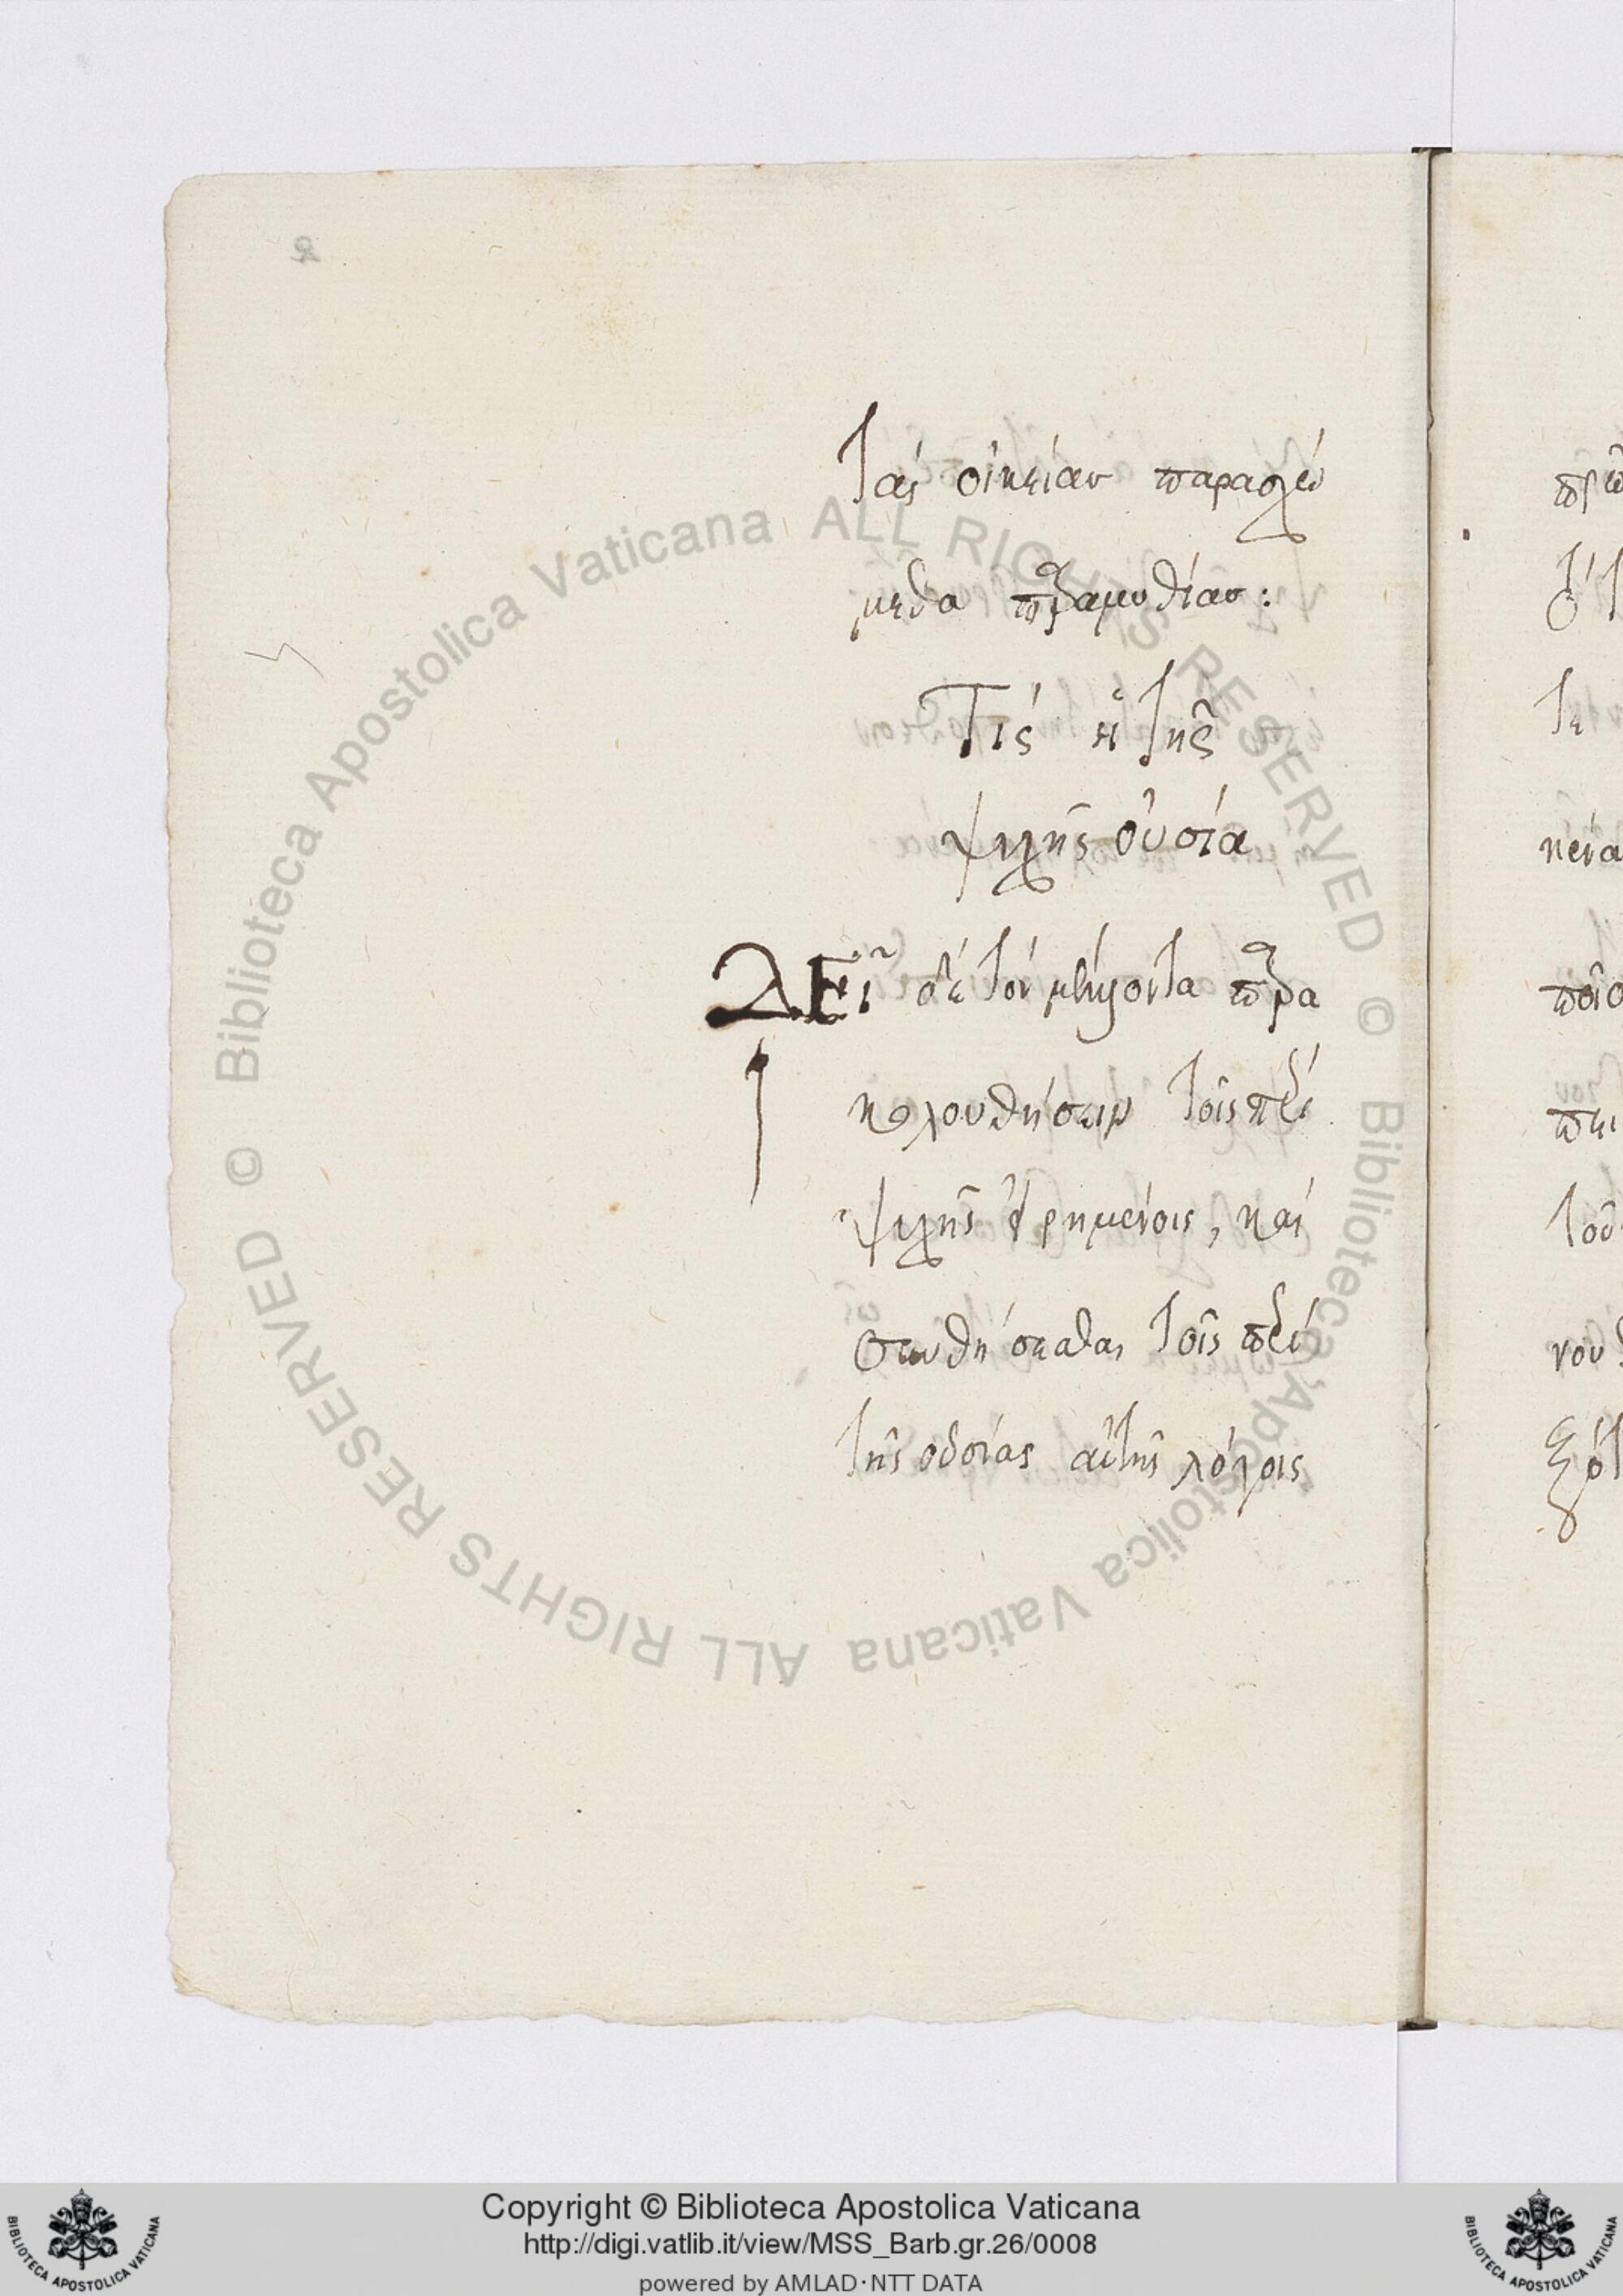 τὰς οἰκείας παρασχώ
μεθα παραμυθίας:
Τίς ἡ τῆς
ψυχῆς οὐσία
ΔΕῖ δὲ τὸν μέλλοντα παρα
κολουθήσειν τοῖς περὶ
ψυχῆς εἰρημένοις, καὶ
συνθήσεσθαι τοῖς περὶ
τῆς οὐσίας αὐτῆς λόγοις
© Biblioteca Apostolica Vaticana ALL RIGHTS RESERVED © Biblioteca Apostolica Vaticana ALL RIGHTS RESERVED
Copyright © Biblioteca Apostolica Vaticana
http://digi.vatlib.it/view/MSS_Barb.gr.26/0008
powered by AMLAD·NTT DATA
BIBLIOTECA APOSTOLICA VATICANA
BIBLIOTECA APOSTOLICA VATICANA